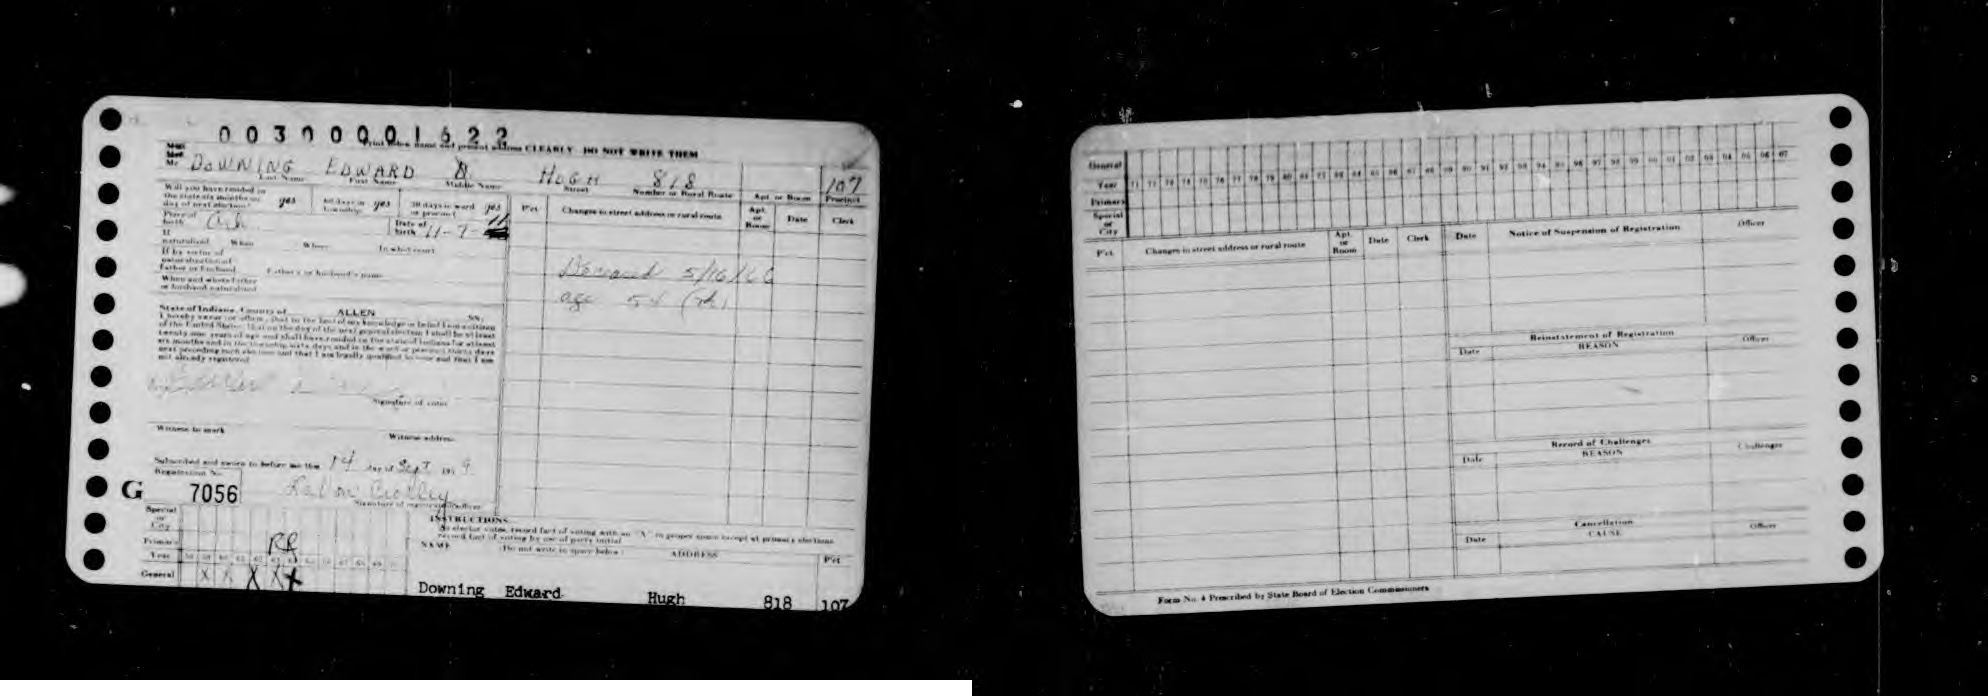 00300001622
Print below name and present address CLEARLY DO NOT WRITE THEM
Mr. DOWNING EDWARD HUGH 818 107
Last Name First Name Middle Name Street Number or Rural Route Apt or Room Precinct
Will you have resided in the state six months on day of next election? yes 60 days in township yes 30 days in ward or precinct yes
Place of birth Date of birth 11-7-11
If naturalized When Where In what court
If by virtue of naturalization of Father or husband Father's or husband's name
When and where father or husband naturalized
State of Indiana, County of ALLEN SS:
I hereby swear or affirm, that to the best of my knowledge or belief I am a citizen
of the United States. That on the day of the next general election I shall be at least
twenty-one years of age and shall have resided in the state of Indiana for at least
six months and in the township sixty days and in the ward or precinct thirty days
next preceding such election and that I am legally qualified to vote and that I am
not already registered
Signature of voter
Witness to mark Witness address
Subscribed and sworn to before me this 14 day of Sept 195 9
Registration No.
G 7056
Signature of registration officer
Special or City
Primary RR
Year
General X X X X X
P'ct Changes in street address or rural route Apt. or Room Date Clerk
Deceased 5/16/66
age 54
INSTRUCTIONS
As elector votes, record fact of voting with an "X" in proper space except at primary elections
record fact of voting by use of party initial
NAME (Do not write in space below) ADDRESS P'ct
Downing Edward Hugh 818 107
General
Year 71 72 73 74 75 76 77 78 79 80 81 82 83 84 85 86 87 88 89 90 91 92 93 94 95 96 97 98 99 00 01 02 03 04 05 06 07
Primary
Special or City
P'ct Changes in street address or rural route Apt. or Room Date Clerk
Date Notice of Suspension of Registration Officer
Reinstatement of Registration
Date REASON Officer
Record of Challenges
Date REASON Challenger
Cancellation
Date CAUSE Officer
Form No. 4 Prescribed by State Board of Election Commissioners